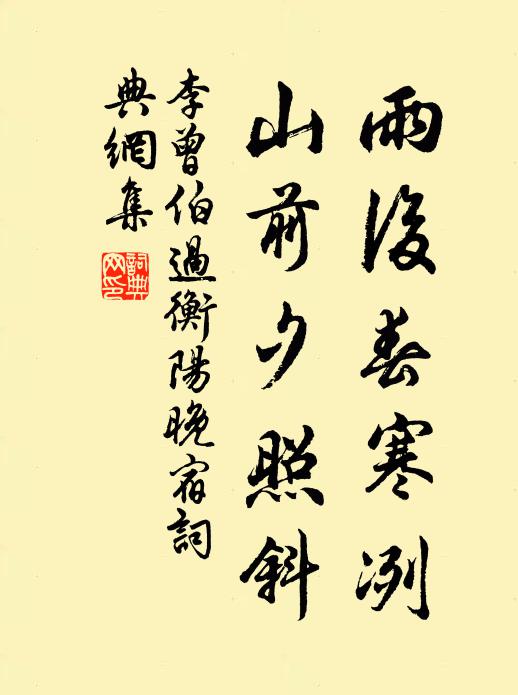 雨後春寒冽
山前夕照斜
李曾伯過衡陽晚宿詞
典網集
詞典
网印